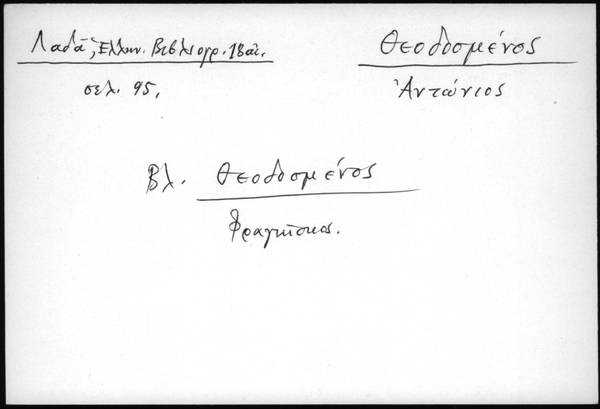 Λαδᾶ, Ἑλλην. Βιβλιογρ. 18 αἰ.
σελ. 95.
Θεοδοσμένος
Ἀντώνιος
Βλ. Θεοδοσμένος
Φραγκῖσκος.